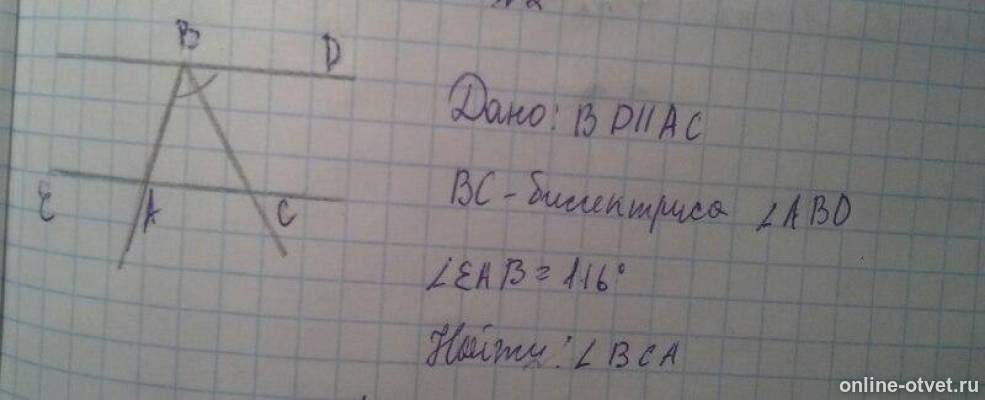 №2
B
D
E
A
C
Дано: BD||AC
BC - биссектриса ∠ABD
∠EAB = 116°
Найти: ∠BCA
online-otvet.ru